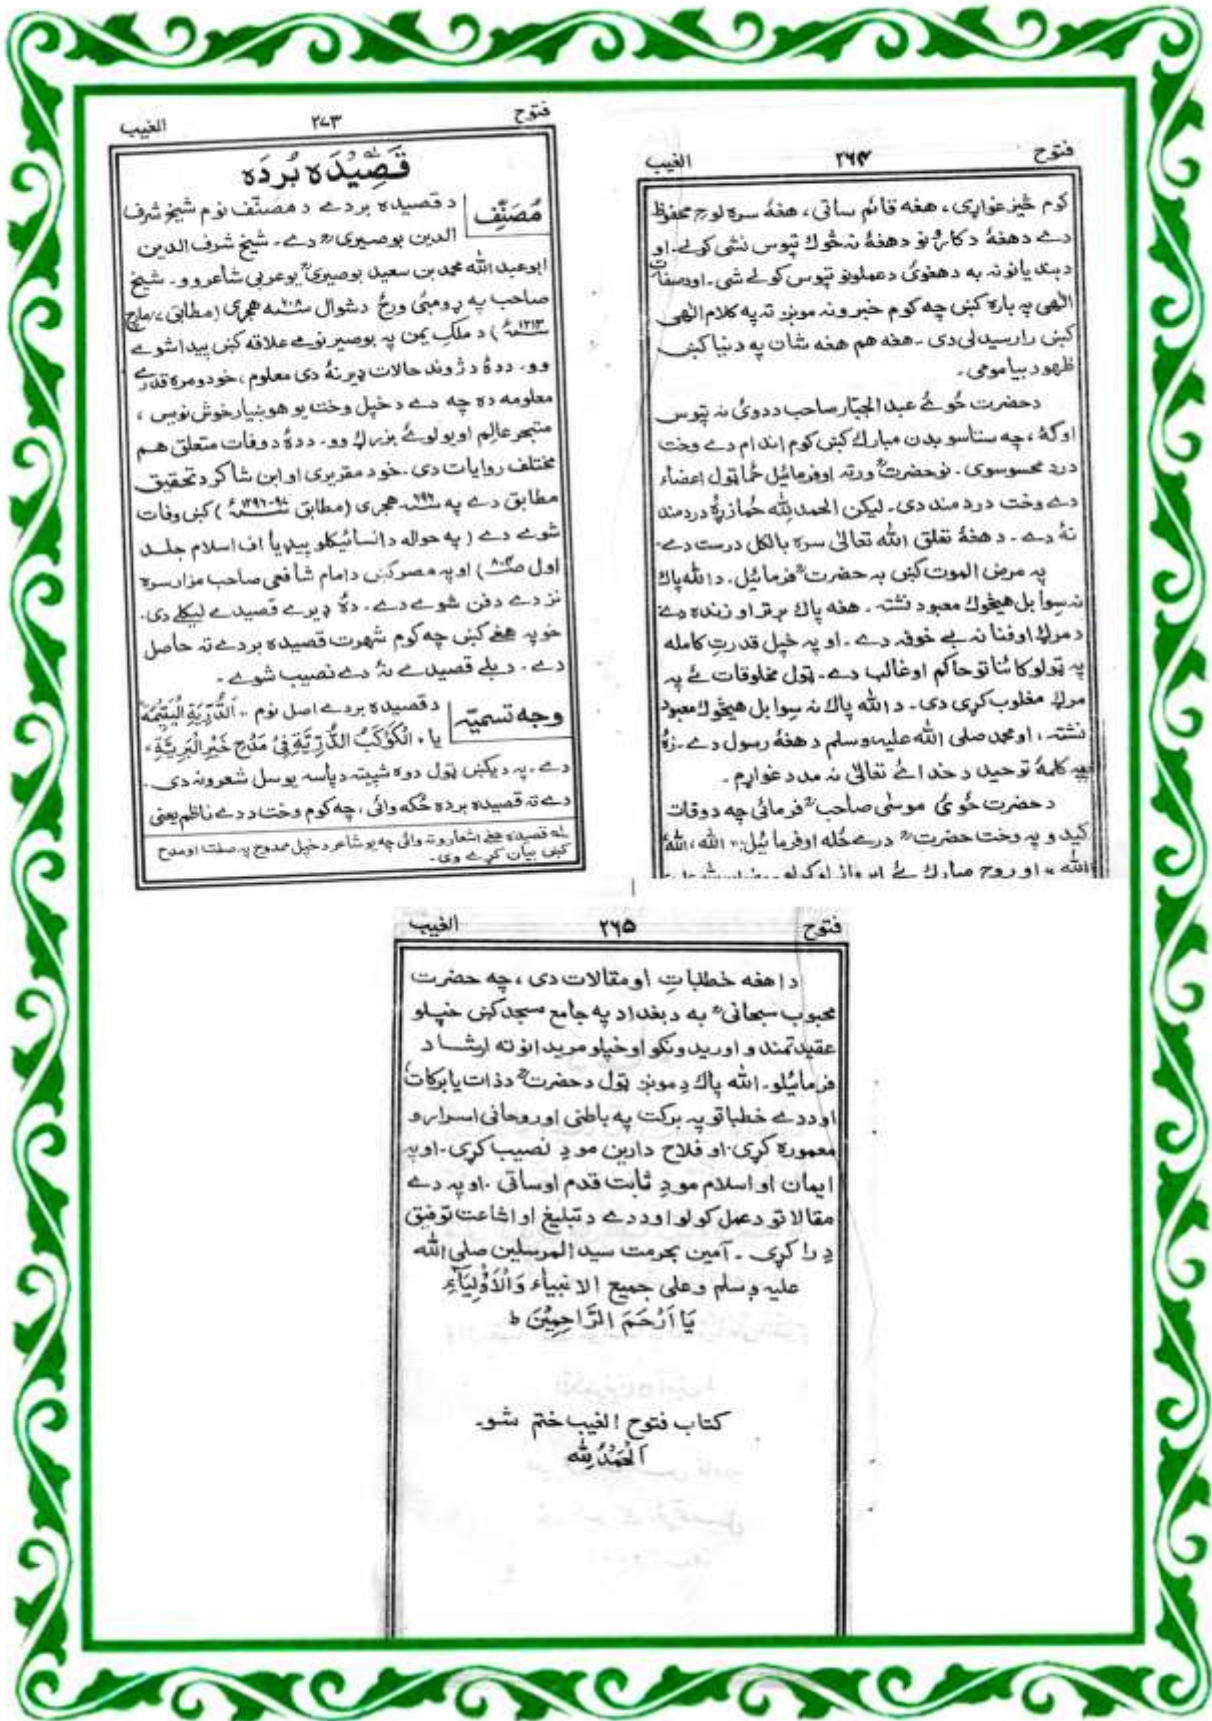 فتوح ۲۶۴ الغیب
کوم څیز غواړی، هغه قائم ساتی، هغهٔ سره لوح محفوظ
دے دهغهٔ د کارونو دهغهٔ نه څوك تپوس نشی کولے. او
د بندیانو نه به دهغوئ دعملونو تپوس کولے شی۔ اودصفات
الٰهی په باره کښ چه کوم خبرونه مونږ ته په کلام الٰهی
کښ رارسیدلی دی۔ هغه هم هغه شان په دنیا کښ
ظهور بیا مومی۔
دحضرت ځوئے عبد الجبّار صاحب ددوئ نه تپوس
اوکهٔ، چه ستاسو بدن مبارك کښ کوم اندام دے وخت
درد محسوسوی۔ نوحضرتؒ ورته اوفرمائیل ځما ټول اعضاء
دے وخت درد مند دی۔ لیکن الحمد للّٰه ځما زړهٔ درد مند
نهٔ دے۔ دهغهٔ تعلق اللّٰه تعالیٰ سره بالکل درست دے۔
په مرض الموت کښ به حضرتؒ فرمائیل۔ داللّٰه پاك
نه سوا بل هیڅوك معبود نشته۔ هغه پاك برتر او زنده دے
دمرګ اوفنا نه بے خوفه دے۔ اوپه خپل قدرتِ کامله
په ټولو کائناتو حاکم اوغالب دے۔ ټول مخلوقات ئے په
مرګ مغلوب کړی دی۔ داللّٰه پاك نه سوا بل هیڅوك معبود
نشته، اومحمد صلی اللّٰه علیه وسلم دهغهٔ رسول دے۔ زهٔ
په کلمهٔ توحید د خدائے تعالیٰ نه مدد غواړم۔
دحضرت ځوئ موسیٰ صاحبؒ فرمائی چه دوفات
کیدو په وخت حضرتؒ درے ځله اوفرمائیل: اللّٰه، اللّٰه
اللّٰه، او روح مبارك ئے
فتوح ۲۷۳ الغیب
قَصِیْدَه بُردَه
مُصَنِّف دقصیده بردے د مصنّف نوم شیخ شرف
الدین بوصیریؒ دے۔ شیخ شرف الدین
ابوعبد اللّٰه محمد بن سعید بوصیریؒ یوعربی شاعر وو۔ شیخ
صاحب په ړومبئ ورځ دشوال ۶۰۸ سنه هجری (مطابق ۷ مارچ
۱۲۱۳ء) د ملک یمن په بوصیر نومے علاقه کښ پیدا شوے
وو۔ ددهٔ د ژوند حالات ډیر نهٔ دی معلوم، خودومره قدرے
معلومه ده چه دے دخپل وخت یو هوښیار خوش نویس،
متبحر عالم اویولوئے بزرګ وو۔ ددهٔ دوفات متعلق هم
مختلف روایات دی۔ خود مقریزی اوابن شاکر دتحقیق
مطابق دے په ۶۹۶ سنه هجری (مطابق ۹۷-۱۲۹۶ء) کښ وفات
شوے دے (په حواله دانسائیکلو پیډیا اف اسلام جلد
اول ص ۸۰۴) اوپه مصر کښ دامام شافعی صاحب مزار سره
نزدے دفن شوے دے۔ دهٔ ډیرے قصیدے لیکلے دی۔
خوپه هغے کښ چه کوم شهرت قصیده بردے ته حاصل
دے۔ دبلے قصیدے نهٔ دے نصیب شوے۔
وجه تسمیّه دقصیده بردے اصل نوم "اَلدُّرِّیَةِ الْیَتِیْمَة"
یا "اَلْکَوْکَبُ الدُّرِّیَّةُ فِیْ مَدْحِ خَیْرِ الْبَرِیَّةِ"
دے۔ په دیکښ ټول دوه شپیته دپاسه یوسل شعرونه دی۔
دے ته قصیده برده ځکه وائی، چه کوم وخت ددے ناظم یعنی
له قصیده هغے اشعارو ته وائی چه یو شاعر دخپل ممدوح په صفت اومدح
کښ بیان کړے وی۔
فتوح ۲۶۵ الغیب
دا هغه خطباتِ اومقالات دی، چه حضرت
محبوب سبحانیؒ به دبغداد په جامع مسجد کښ خپلو
عقیدتمندو اوریدونکو اوخپلو مریدانو ته ارشاد
فرمائیلو۔ اللّٰه پاك دِ مونږ ټول دحضرتؒ دذات یابرکات
اوددے خطباتو په برکت په باطنی اوروحانی اسرارو
معموره کړی۔ او فلاح دارین مودِ نصیب کړی۔ اوپه
ایمان اواسلام مودِ ثابت قدم اوساتی۔ اوپه دے
مقالاتو دعمل کولو اوددے دتبلیغ اواشاعت توفیق
دِ راکړی۔ آمین بحرمت سید المرسلین صلی اللّٰه
علیه وسلم وعلی جمیع الانبیاء وَالْاَوْلِیَآءِ
یَا اَرْحَمَ الرَّاحِمِیْنَ ط
کتاب فتوح الغیب ختم شو۔
اَلْحَمْدُ لِلّٰه